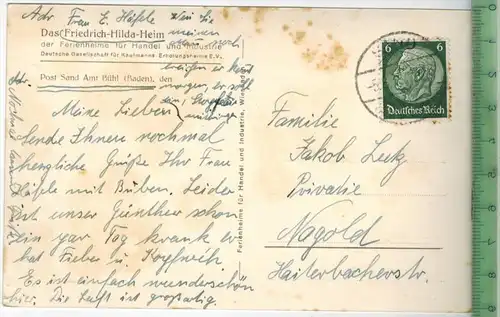 Adr Frau E. Häfele
Das Friedrich-Hilda-Heim
der Ferienheime für Handel und Industrie
Deutsche Gesellschaft für Kaufmanns-Erholungsheime E.V.
Post Sand Amt Bühl (Baden), den
Meine Lieben
Sende Ihnen nochmal
herzliche Grüße Ihr Frau
Häfele mit Buben. Leider
ist unser Günther schon
ein par Tag krank er
hat Fieber u Kopfweh.
Es ist einfach wunderschön
hier. Die Luft ist großartig.
Ferienheime für Handel und Industrie, Wiesbaden
6 6
Deutsches Reich
Familie
Jakob Lutz
Privatie
Nagold
Haiterbacherstr.